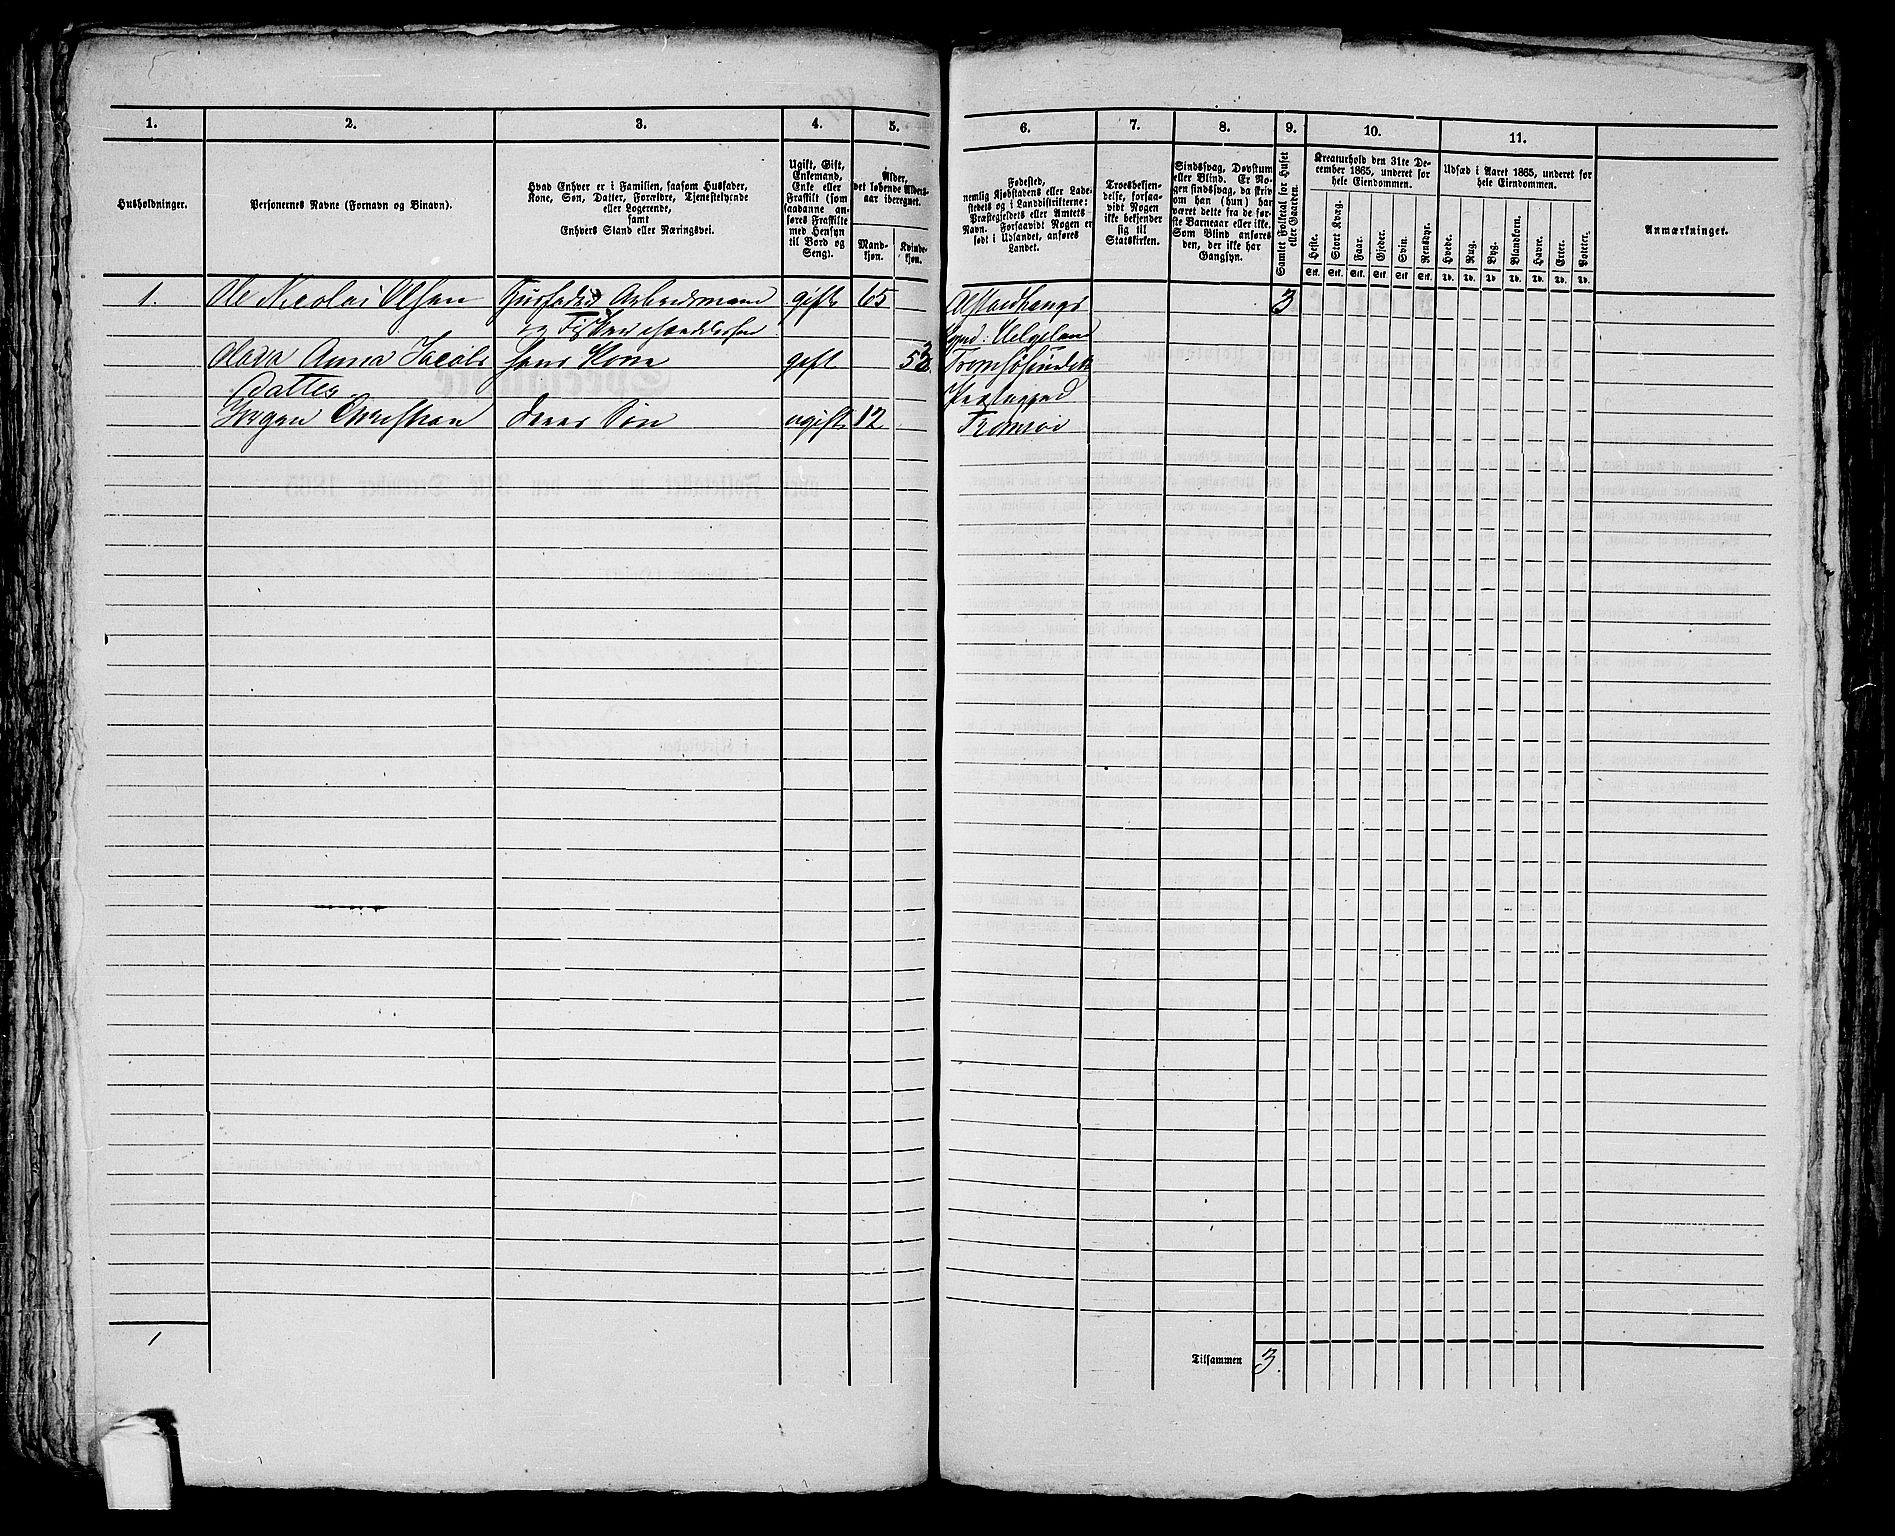 1.
2.
3.
4.
5.
6.
7.
8.
9.
10.
11.
Husholdninger.
Personernes Navne (Fornavn og Binavn).
Hvad Enhver er i Familien, saasom Husfader,
Kone, Søn, Datter, Forældre, Tjenestetyende
eller Logerende,
samt
Enhvers Stand eller Næringsvei.
Ugift, Gift,
Enkemand,
Enke eller
Fraskilt (som
saadanne an-
føres Fraskilte
med Hensyn
til Bord og
Seng).
Alder,
det løbende Alders-
aar iberegnet.
Mand-
kjøn.
Kvinde-
kjøn.
Fødested,
nemlig Kjøbstadens eller Lade-
stedets og i Landdistrikterne:
Præstegjeldets eller Amtets
Navn. Forsaavidt Nogen er
født i Udlandet, anføres
Landet.
Troesbekjen-
delse, forsaa-
vidt Nogen
ikke bekjender
sig til
Statskirken.
Sindssvag, Døvstum
eller Blind. Er No-
gen sindssvag, da skriv
om han (hun) har
været dette fra de før-
ste Barneaar eller ikke.
Som Blind anføres
den, der ikke har
Gangsyn.
Samlet Folketal for Huset
eller Gaarden.
Kreaturhold den 31te De-
cember 1865, underet for
hele Eiendommen.
Heste.
Stort Kvæg.
Faar.
Gjeder.
Svin.
Rensdyr.
Stk. Stk. Stk. Stk. Stk. Stk.
Udsæd i Aaret 1865, underet for
hele Eiendommen.
Hvede.
Rug.
Byg.
Blandkorn.
Havre.
Erter.
Poteter.
Td. Td. Td. Td. Td. Td. Td.
Anmærkninger.
1. Ole Nicolai Olsen Husfader Arbeidsmand gift 65 Alstadhougs 3
og Fisker
Sogn i Helgeland
Anna Jacobs hans Kone gift 53 Tromsøsundets
datter
Præstegjeld
Jørgen Christian deres Søn ugift 12 Tromsøe
1
Tilsammen 3.